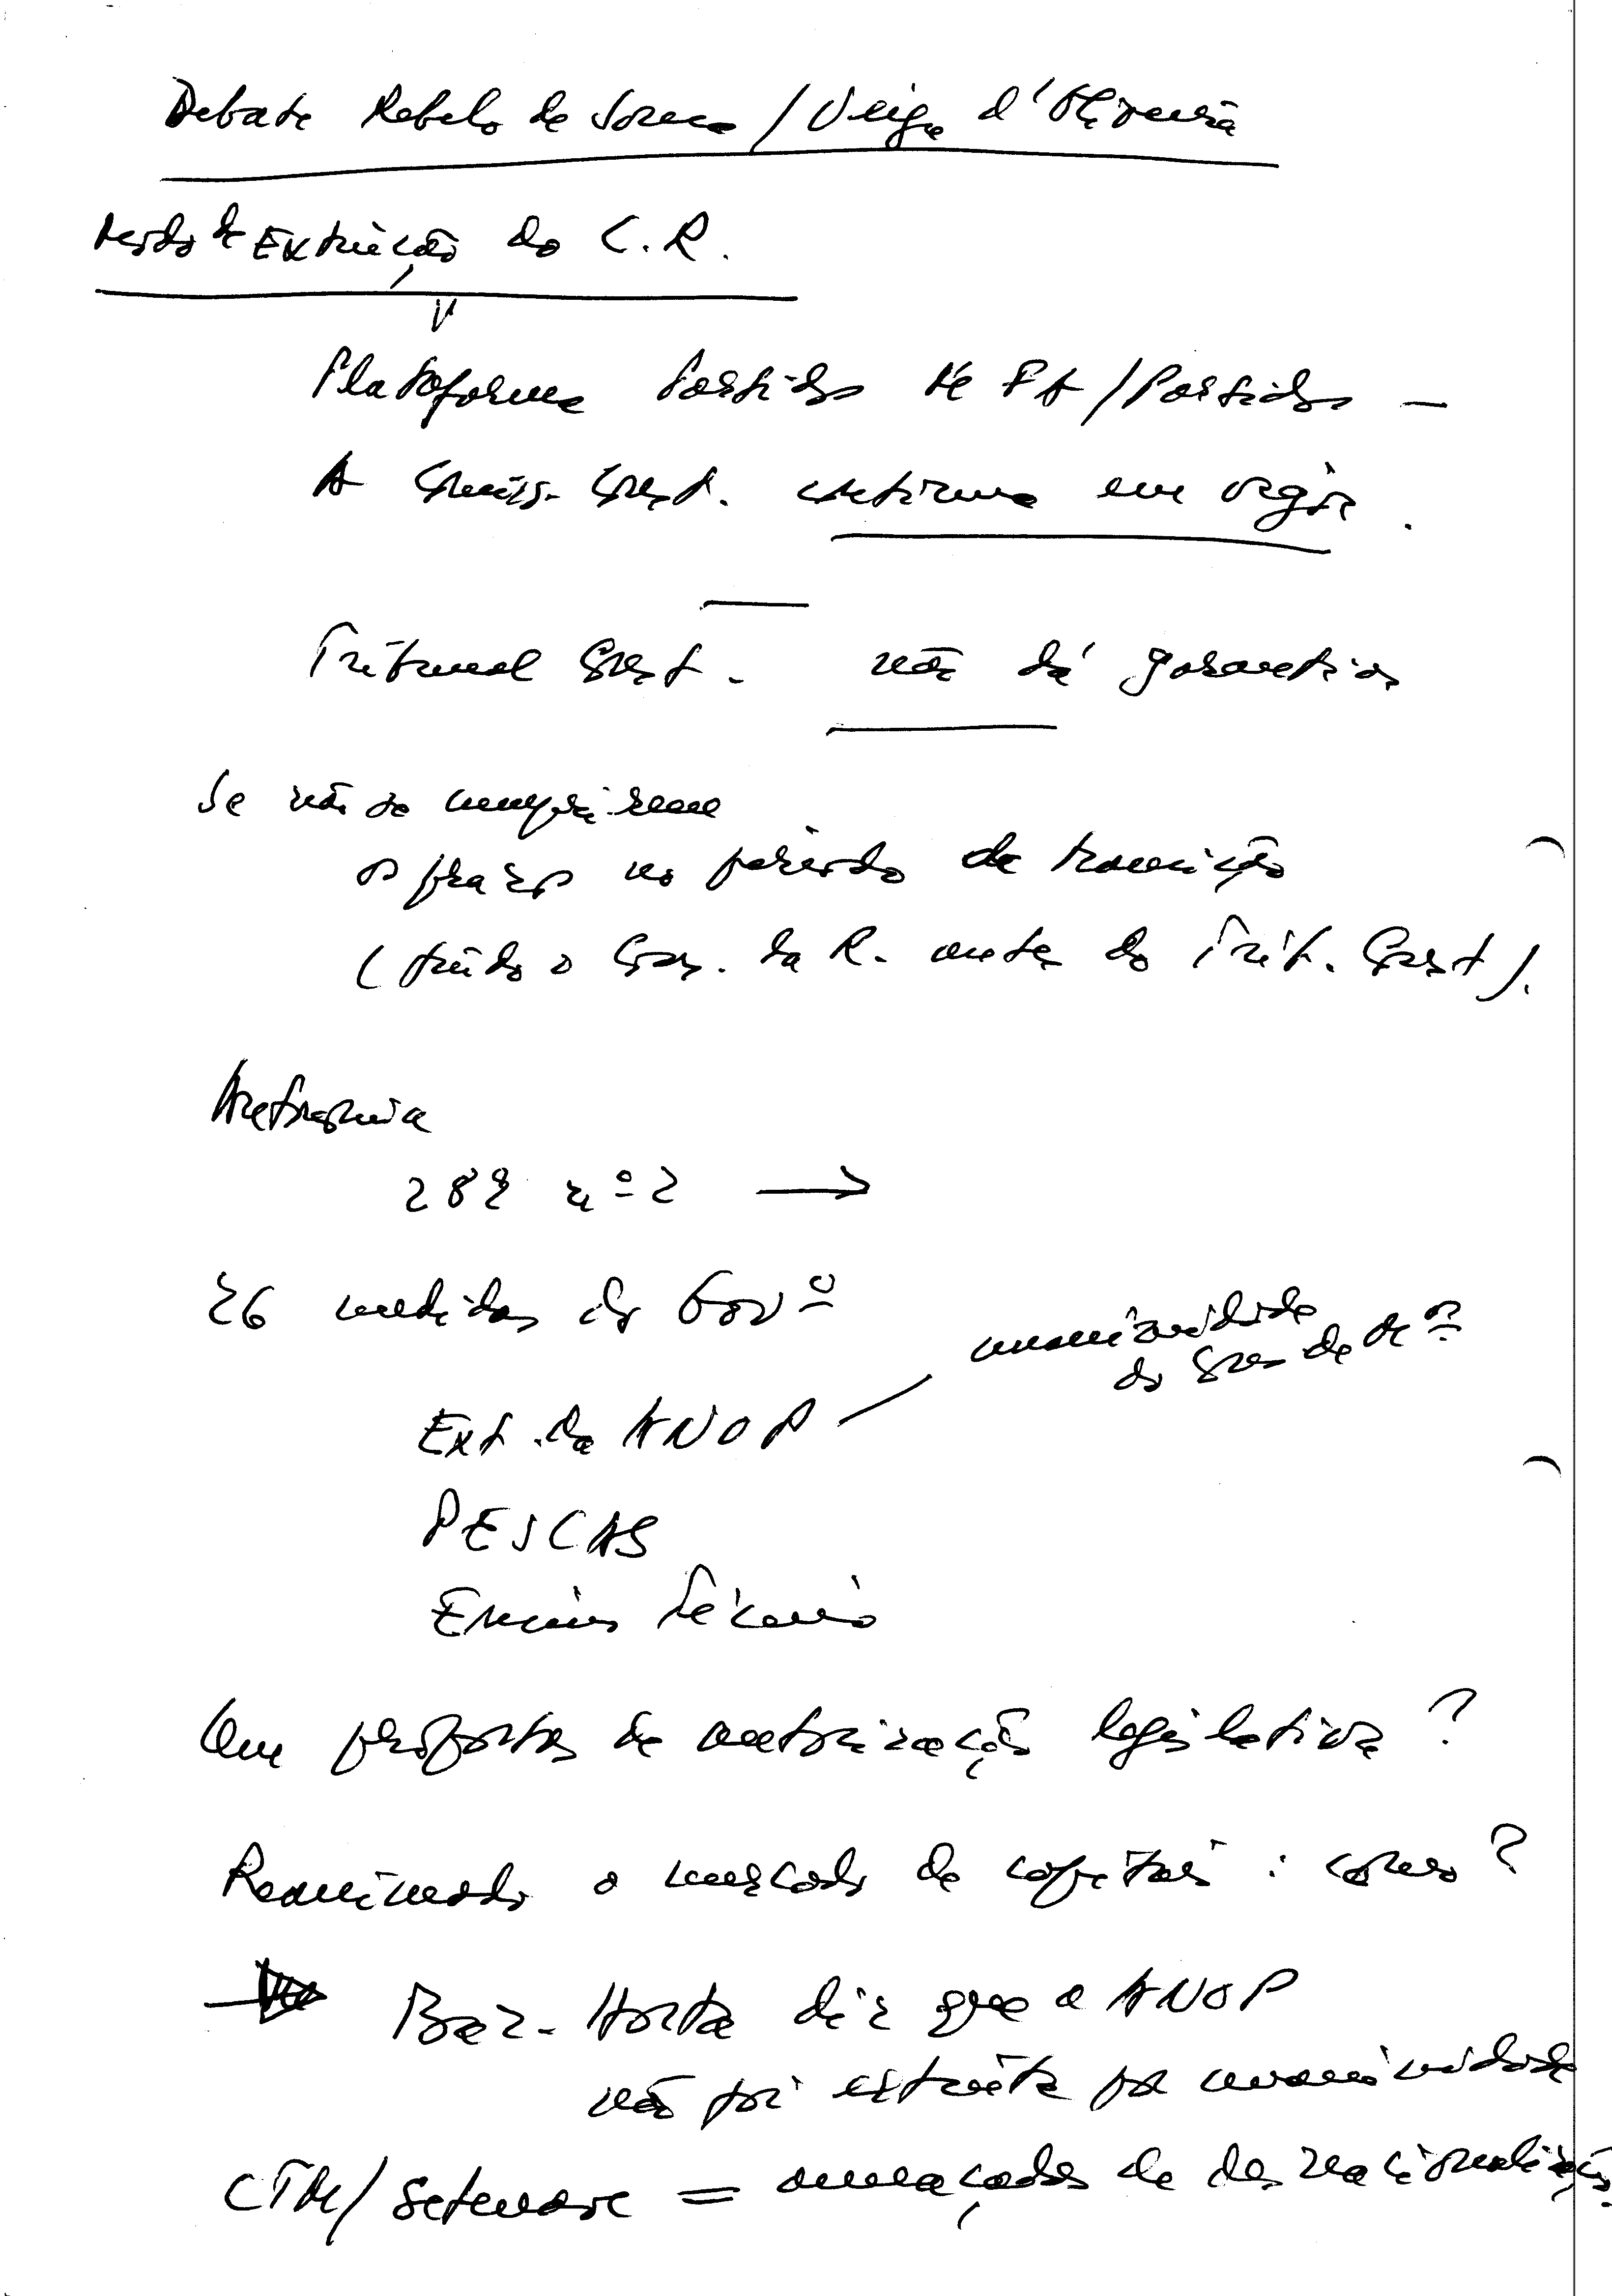 Debate Rebelo de Sousa / Veiga d'Oliveira
de Extinção do C.R.
Plataforma Partidos / Partidos —
A Comis. Const. continua em vigor.
Tribunal Const. não dá garantias
Se não se cumprirem
os prazos no período de transição
(findo o Cons. da R. antes do Trib. Const).
Astronomia
282 nº 2 →
26 medidas do Govº
unanimidade
do Cons de
Ext. da ANOP
PESCAS
Ensino Técnico
Um propostas de autorização legislativa?
Reanimado o mercado de capitais: como?
Baz. Horta diz que a ANOP
não foi extinta por unanimidade
CTM / Setenave = ameaçadas de desnacionalização